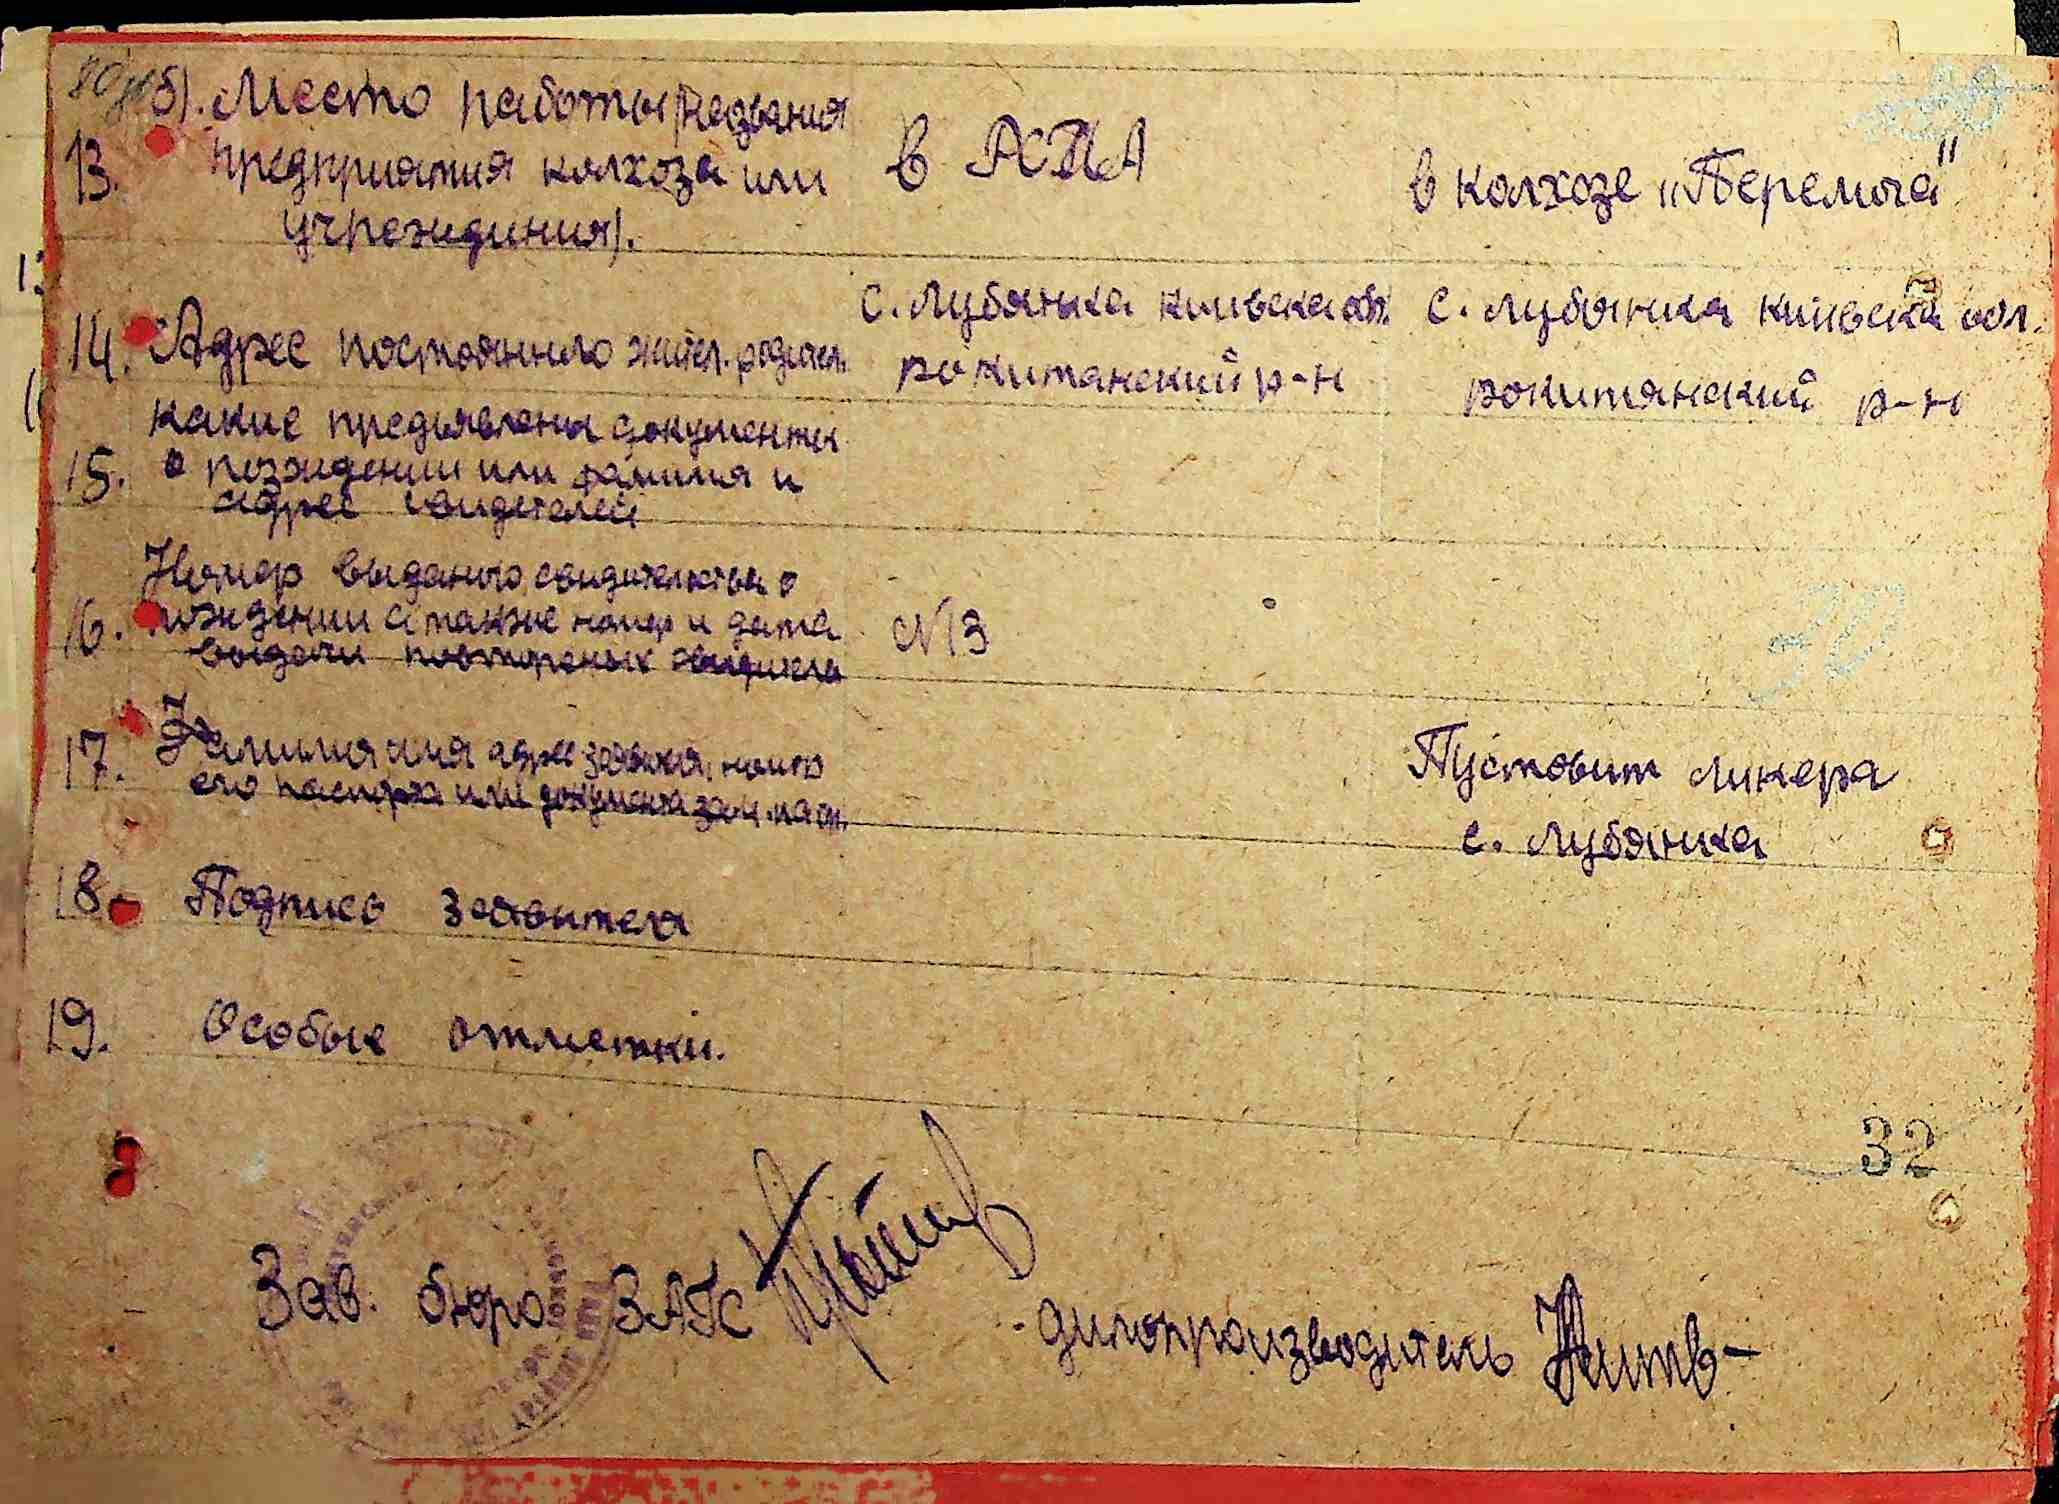 б). Место работы (названия
13. предприятия колхоза или
учрежидиния).
в РСПА
в колхозе „Перемога"
14. Адрес постоянного жител. родител.
с. Лубянка київска обл.
рокитанский р-н
с. Лубянка київска обл.
рокитянский р-н
какие предъявлены документы
15. о рождении или фамилия и
адрес свидетелей
Номер выданого свидительства о
16. рождении а также номер и дата
выдачи повторных
№13
17. Фамилия имя адрес заявителя, номер
его паспорта или документа зам. пасп.
Пустовит Микера
с. Лубянка
18. Подпись заявителя
19. Особые отметки.
32
Зав. бюро ЗАГС
дилопроизводитель